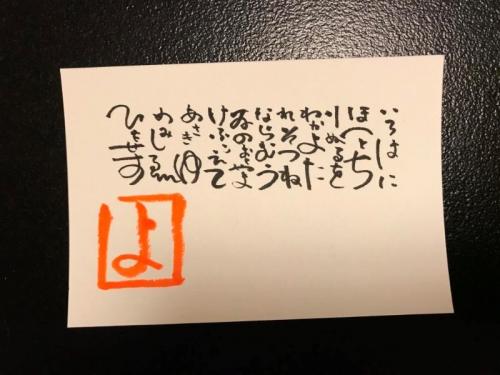 いろはに
ほへとち
りぬるを
わかよた
れそつね
ならむう
ゐのおくやま
けふこえて
あさきゆ
めみしゑ
ひもせす
よ